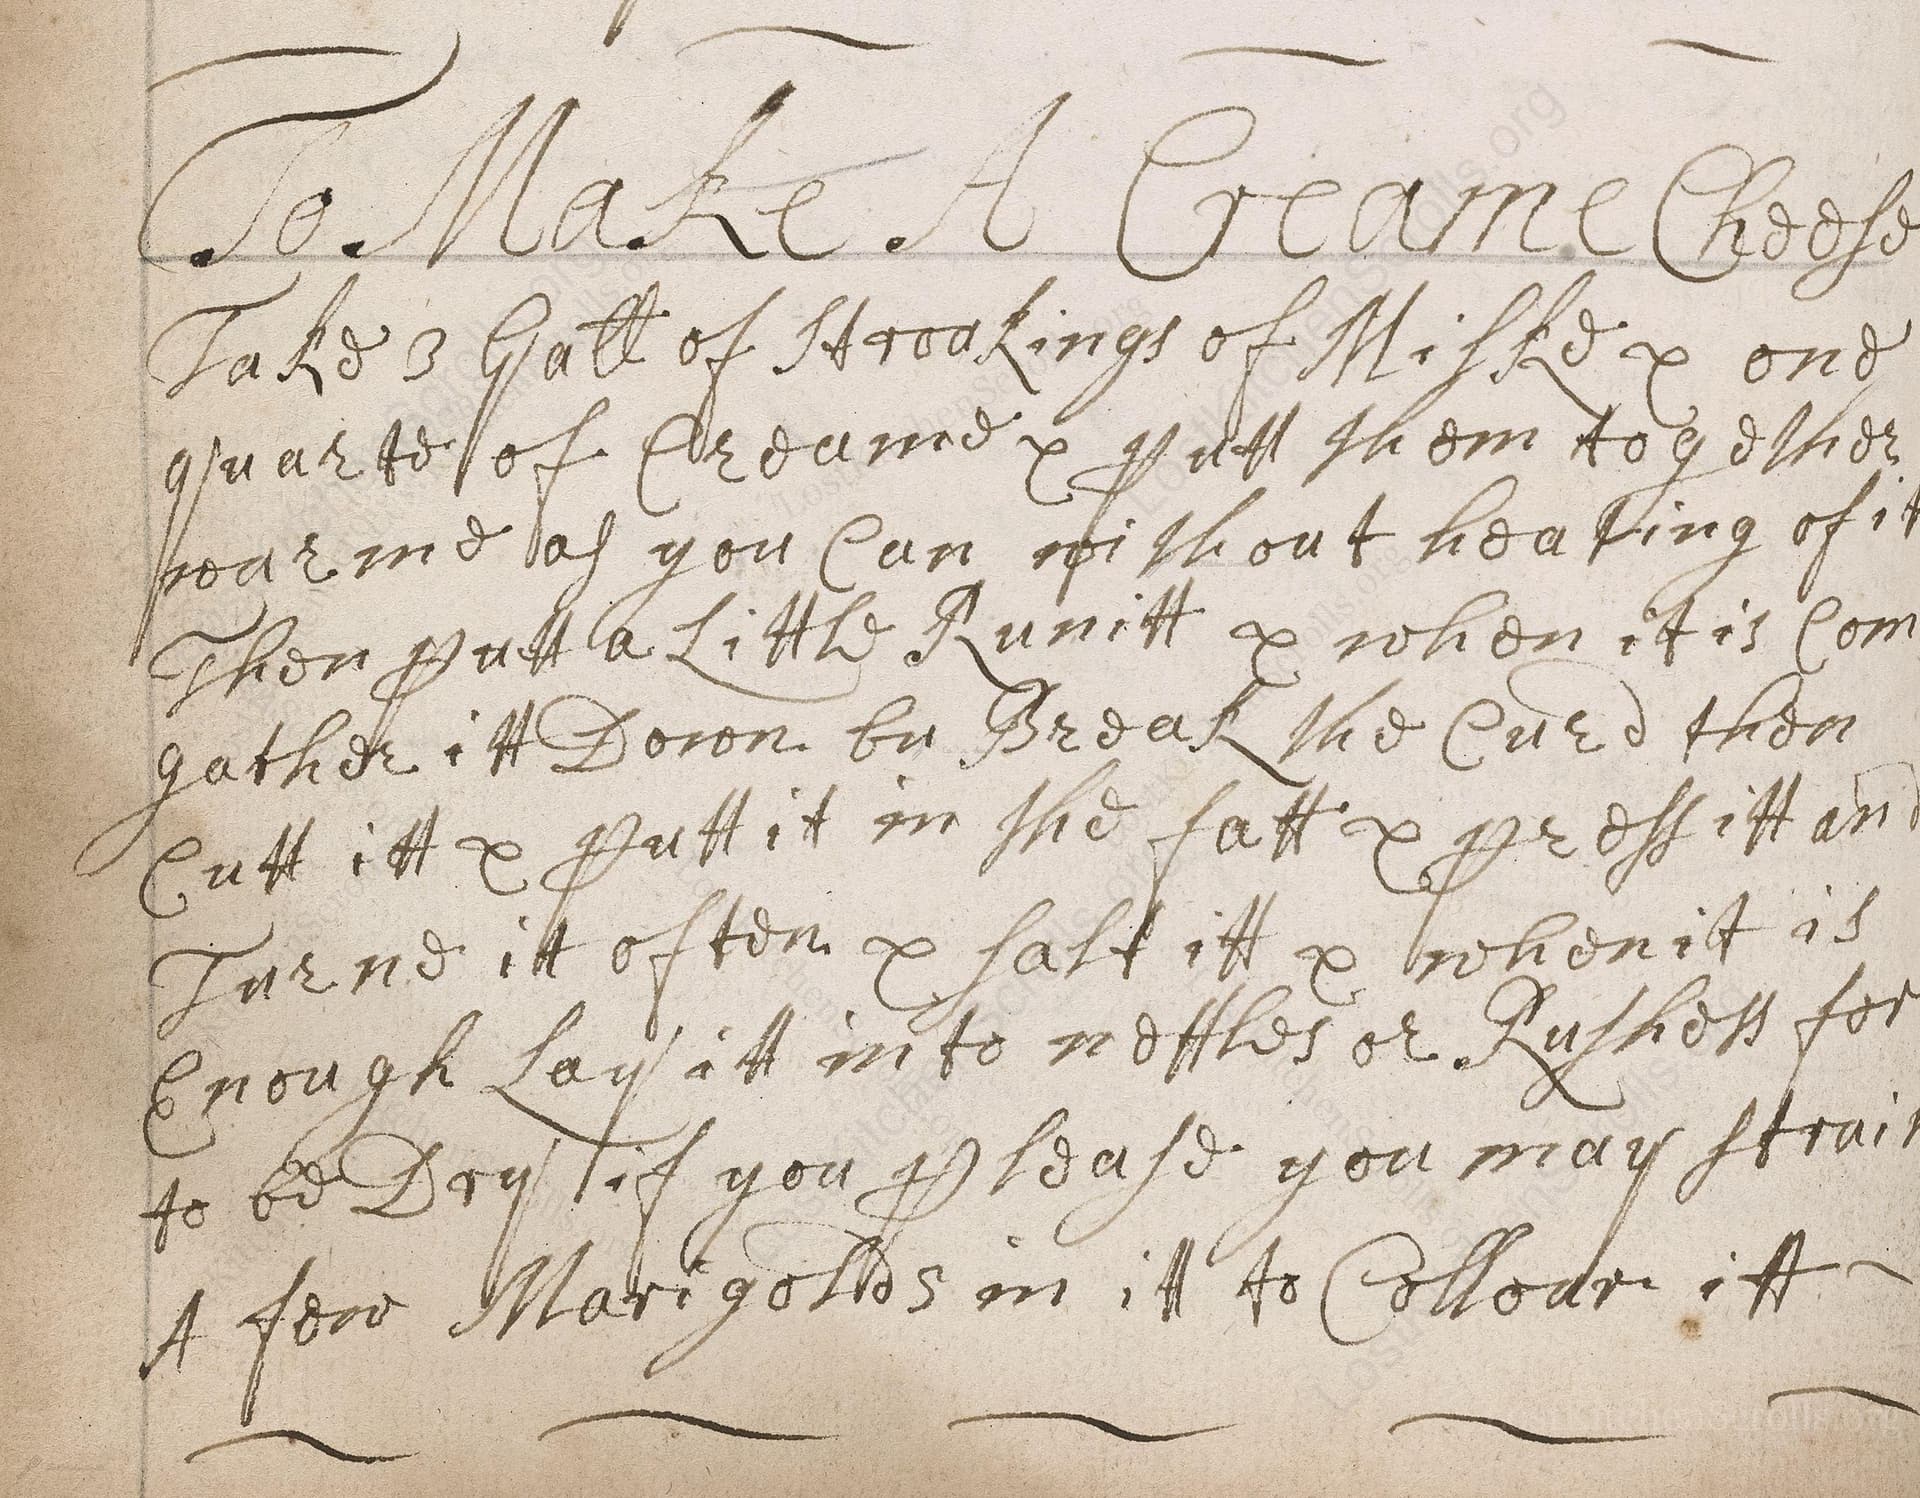 To Make A Creame Cheese
Take 3 Gall of stroakings of Milke & one
quarte of Creame & putt them together
warme as you Can without heating of it
Then putt a Little Runitt & when it is Com
gather itt Down bu Break the Curd then
Cutt itt & putt it in the fatt & press itt and
Turne itt often & salt itt & when it is
Enough Lay itt into nettles or Rushess for
to be Dry if you please you may strain
A few Marigolds in itt to Collour itt ~